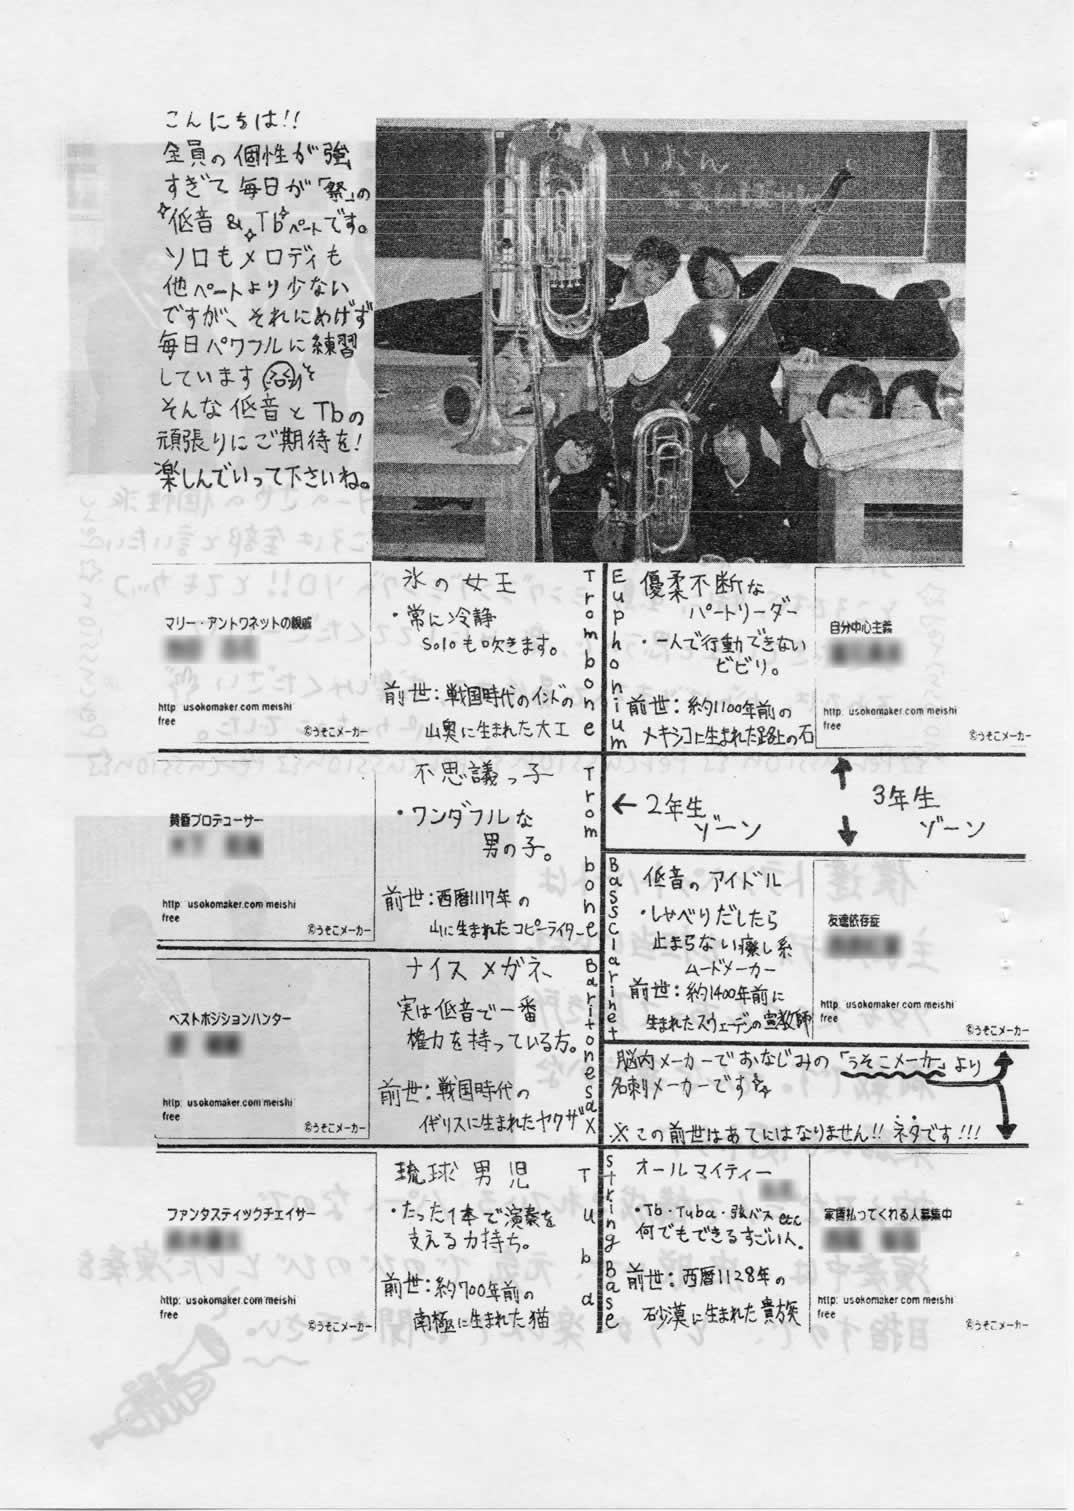 こんにちは!!
全員の個性が強
すぎて毎日が「祭」の
低音 & Tbパートです。
ソロもメロディも
他パートより少ない
ですが、それにめげず
毎日パワフルに練習
しています
そんな低音とTbの
頑張りにご期待を!
楽しんでいって下さいね。
マリー・アントワネットの親戚
http: usokomaker.com meishi
free
©うそこメーカー
氷の女王
・常に冷静
Soloも吹きます。
前世:戦国時代のインドの
山奥に生まれた大工
Trombone
Euphonium
優柔不断な
パートリーダー
・一人で行動できない
ビビり。
前世:約1100年前の
メキシコに生まれた路上の石
自分中心主義
http: usokomaker.com meishi
free
©うそこメーカー
黄昏プロデューサー
http: usokomaker.com meishi
free
©うそこメーカー
不思議っ子
・ワンダフルな
男の子。
前世:西暦1117年の
山に生まれたコピーライター
Trombone
←2年生
ゾーン
3年生
ゾーン
Bassclarinet
低音のアイドル
・しゃべりだしたら
止まらない癒し系
ムードメーカー
前世:約1400年前に
生まれたスウェーデンの宣教師
友達依存症
http: usokomaker.com meishi
free
©うそこメーカー
ベストポジションハンター
http: usokomaker.com meishi
free
©うそこメーカー
ナイスメガネ
実は低音で一番
権力を持っている方。
前世:戦国時代の
イギリスに生まれたヤクザ
Baritonesax
脳内メーカーでおなじみの「うそこメーカー」より
名刺メーカーです☆
※この前世はあてにはなりません!! ネタです!!!
ファンタスティックチェイサー
http: usokomaker.com meishi
free
©うそこメーカー
琉球男児
・たった1本で演奏を
支える力持ち。
前世:約700年前の
南極に生まれた猫
Tuba
String Base
オールマイティー
・Tb・Tuba・弦バスetc
何でもできるすごい人。
前世:西暦1128年の
砂漠に生まれた貴族
家賃払ってくれる人募集中
http: usokomaker.com meishi
free
©うそこメーカー